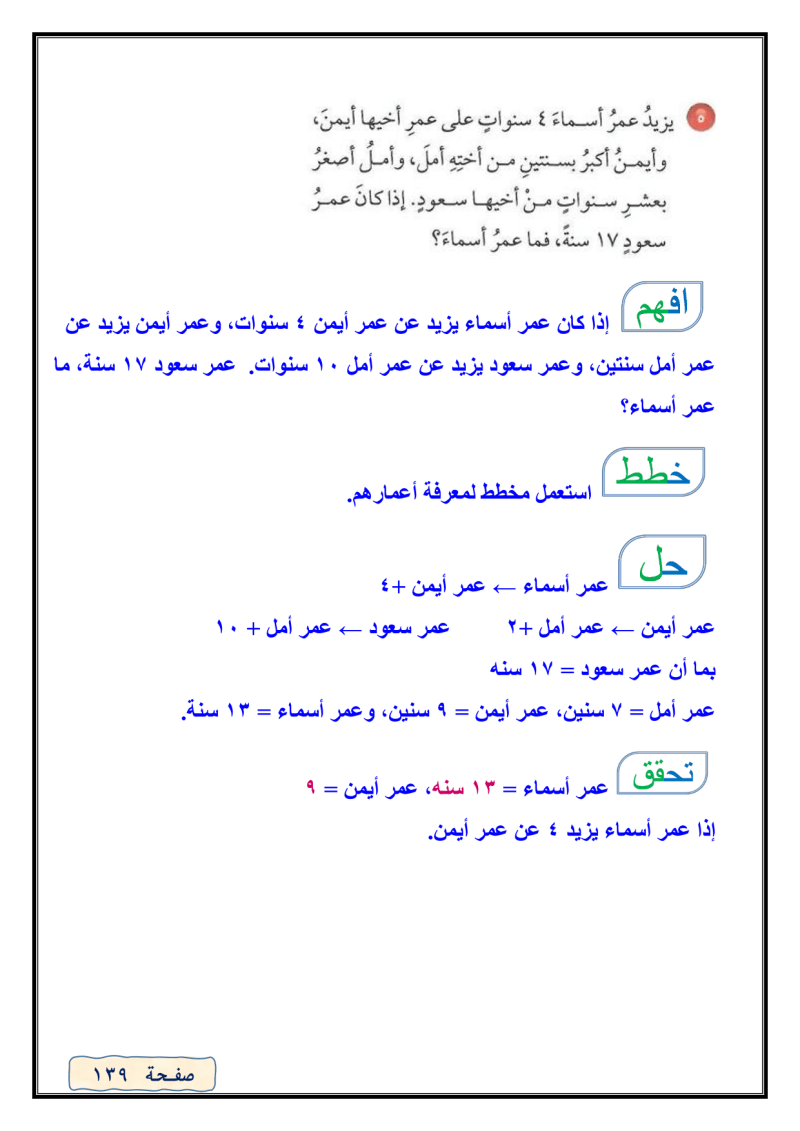 ٥ يزيدُ عمرُ أسـماءَ ٤ سنواتٍ على عمرِ أخيها أيمنَ،
وأيمـنُ أكبرُ بسـنتينِ مـن أختِهِ أملَ، وأمـلُ أصغرُ
بعشـرِ سـنواتٍ مـنْ أخيهـا سـعودٍ. إذا كانَ عمـرُ
سعودٍ ١٧ سنةً، فما عمرُ أسماءَ؟
افهم إذا كان عمر أسماء يزيد عن عمر أيمن ٤ سنوات، وعمر أيمن يزيد عن
عمر أمل سنتين، وعمر سعود يزيد عن عمر أمل ١٠ سنوات. عمر سعود ١٧ سنة، ما
عمر أسماء؟
خطط استعمل مخطط لمعرفة أعمارهم.
حل عمر أسماء ← عمر أيمن +٤
عمر أيمن ← عمر أمل +٢ عمر سعود ← عمر أمل + ١٠
بما أن عمر سعود = ١٧ سنه
عمر أمل = ٧ سنين، عمر أيمن = ٩ سنين، وعمر أسماء = ١٣ سنة.
تحقق عمر أسماء = ١٣ سنه، عمر أيمن = ٩
إذا عمر أسماء يزيد ٤ عن عمر أيمن.
صفحة ١٣٩